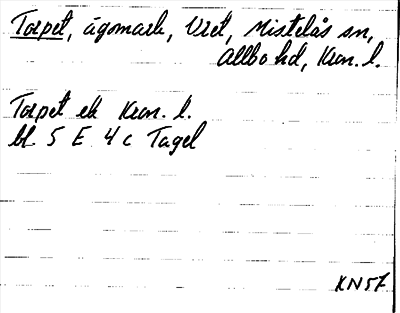 Torpet, ägomark, Vret, Mistelås sn,
Allbo hd, Kron. l.
Torpet ek Kron. l.
bl. 5 E 4 c Tagel
KN57